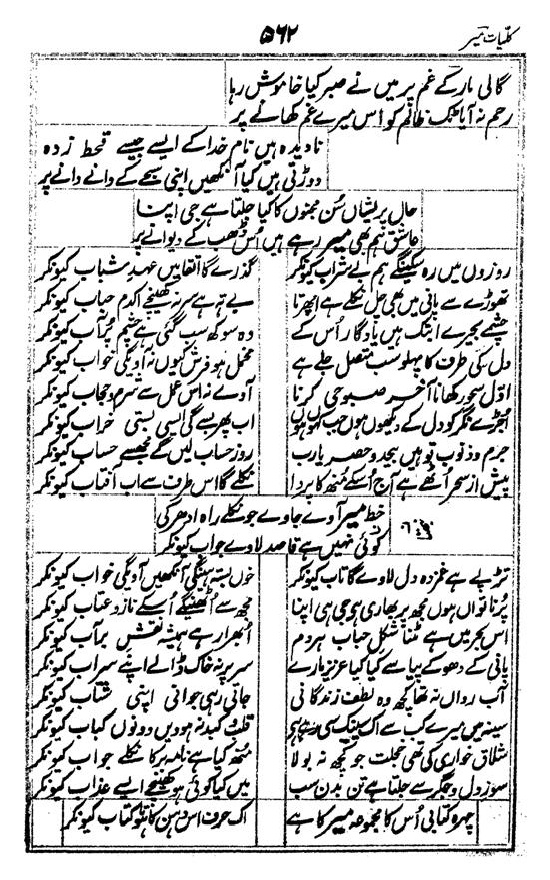 کلیات میر
۵۶۲
گالی مار کے غم پر میں نے صبر کیا خاموش رہا
رحم نہ آیا ٹک ظالم کو اس میرے غم کھانے پر
نادیدہ ہیں نام خدا کے ایسے جیسے قحط زدہ
دوڑتی ہیں کیا آنکھیں اپنی سبحے کے دانے دانے پر
حال پریشاں سن مجنوں کا کیا جلتا ہے جی اپنا
عاشق ہم بھی میر رہے ہیں اس ڈھب کے دیوانے پر
روزوں میں رہ سکینگے ہم بے شراب کیونکر
گذرے گا اتقا میں عہد شباب کیونکر
تھوڑے سے پانی میں بھی چل نکلے ہے اپھرتا
بے تہ ہے سر نہ کھینچے اکدم حباب کیونکر
چشمے بحیرے ابتک ہیں یادگار اس کے
وہ سوکھ سب گئی ہے چشم پر آب کیونکر
دل کی طرف کا پہلو سب متصل جلے ہے
مخمل ہو فرش کیوں نہ آویگی خواب کیونکر
اول سحور کھانا آخر صبوحی کرنا
آوے نہ اس عمل سے شرم و حجاب کیونکر
اجڑے نگر کو دل کے دیکھوں ہوں جب کہوں ہوں
اب پھر بسے گی ایسی بستی خراب کیونکر
جرم و ذنوب تو ہیں بیحد و حصر یارب
روز حساب لیں گے مجھسے حساب کیونکر
پیش از سحر اٹھے ہے آج اسکے منھ کا پردا
نکلے گا اس طرف سے اب آفتاب کیونکر
خط میر آوے جاوے جو نکلے راہ ادھر کی
کوئی نہیں ہے قاصد لاوے جواب کیونکر
تڑپے ہے غمزدہ دل لاوے گا تاب کیونکر
خوں بستہ ہینگی آنکھیں آویگی خواب کیونکر
پر ناتواں ہوں مجھ پر بھاری ہے جی ہی اپنا
مجھ سے اٹھینگے اسکے ناز و عتاب کیونکر
اس بحر میں ہے مٹنا شکل حباب ہر دم
ابھرا رہے ہمیشہ نقش بر آب کیونکر
پانی کے دھوکے پیاسے کیا کیا عزیز مارے
سر پر نہ خاک ڈالے اپنے سراب کیونکر
آب رواں نہ تھا کچھ وہ لطف زندگانی
جاتی رہی جوانی اپنی شتاب کیونکر
سینہ میں میرے کب سے اک سینک سی رہے ہے
قلب و کبد نہ ہوویں دونوں کباب کیونکر
شلاق خواری کی تھی خجلت جو کچھ نہ بولا
منھ کیا ہے نامہ بر کا نکلے جواب کیونکر
سوز دل و جگر سے جلتا ہے تن بدن سب
میں کیا کوئی ہو کھینچے ایسے عذاب کیونکر
چہرہ کتابی اس کا مجموعہ میر کا ہے
اک حرف اس دہن کا ہوتا کتاب کیونکر